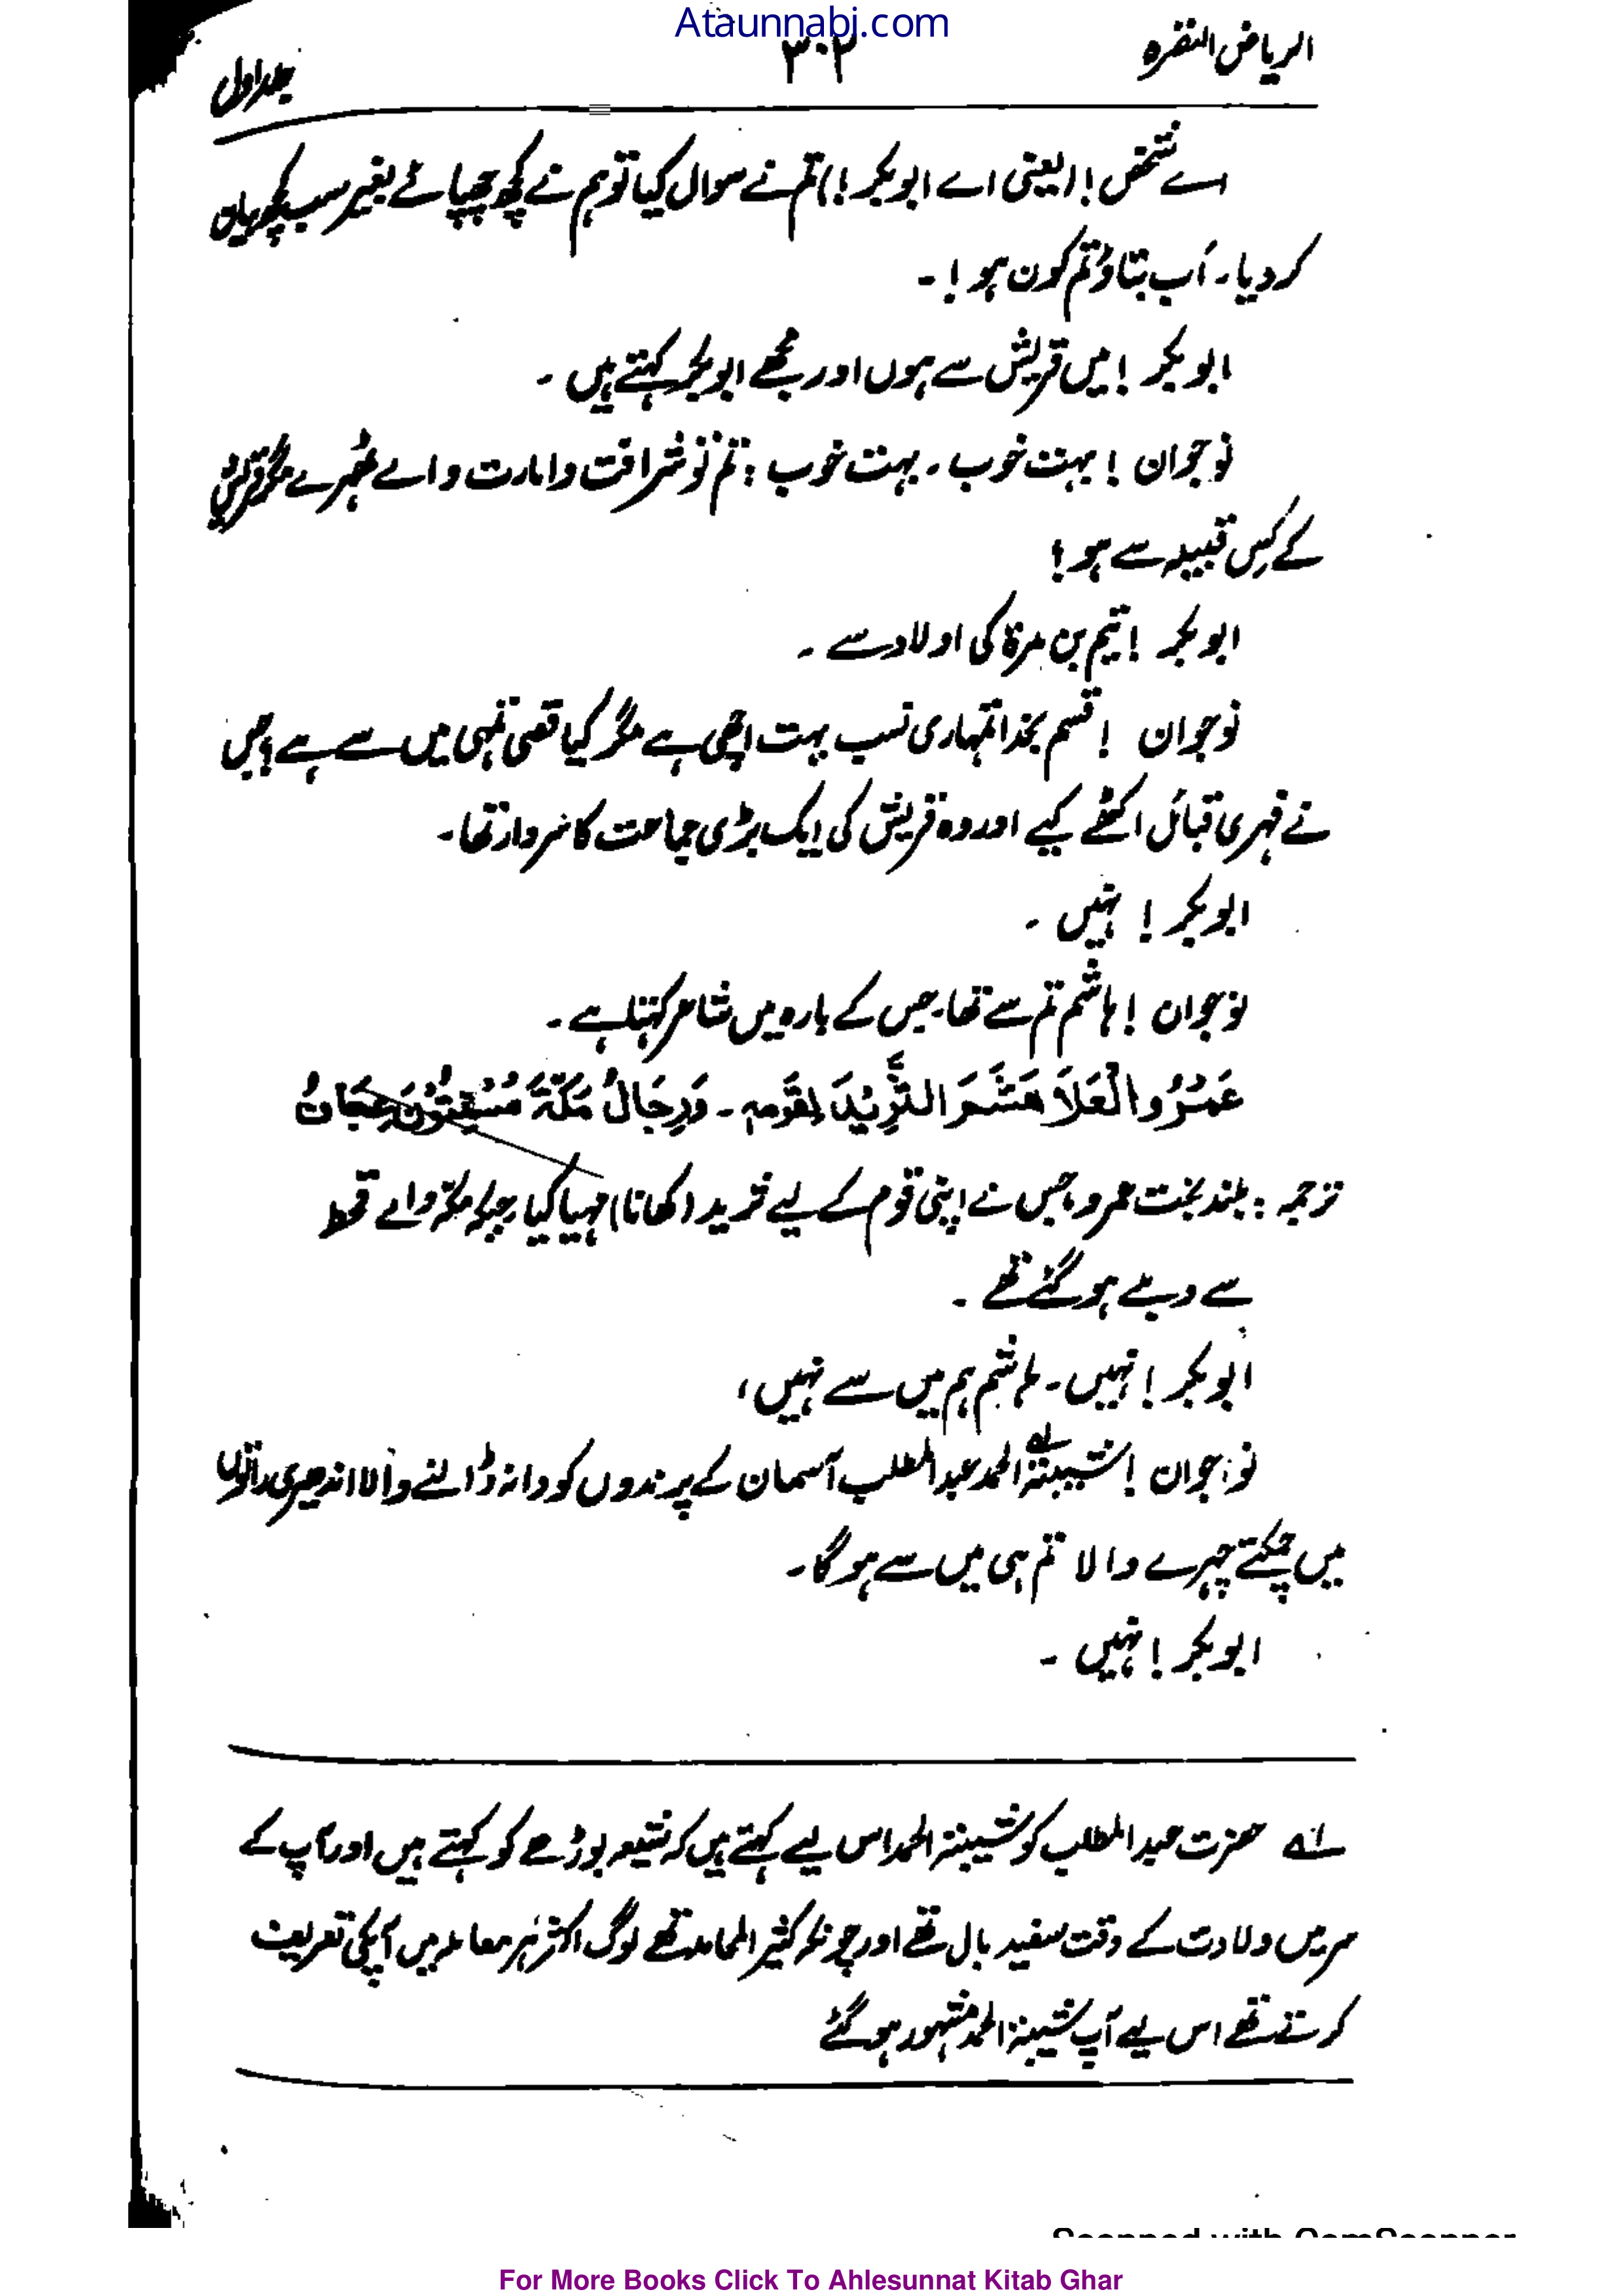 Ataunnabi.com
الریاض النضرہ ۳۰۲ جلد اول
اے شخص! (یعنی اے ابوبکر!) تم نے سوال کیا تو ہم نے کچھ چھپائے بغیر سب کچھ بیان
کر دیا۔ اَب بتاؤ تم کون ہو!۔
ابوبکر! میں قریش سے ہوں اور مجھے ابوبکر کہتے ہیں۔
نوجوان! بہت خوب۔ بہت خوب: تم تو شرافت و امارت والے ٹھہرے مگر قریش
کے کِس قبیلہ سے ہو!
ابوبکر! تیم بن مرۃ کی اولاد سے۔
نوجوان! قسم بخدا تمہاری نسب بہت اچھی ہے مگر کیا قصی تمہی میں سے ہے؟ جس
نے فہری قبائل اکٹھے کیے اور وہ قریش کی ایک بڑی جماعت کا سردار تھا۔
ابوبکر! نہیں۔
نوجوان! ہاشم تم سے تھا۔ جس کے بارہ میں شاعر کہتا ہے۔
عَمْرُو الْعَلَا هَشَمَ الثَّرِيْدَ لِقَوْمِهٖ۔ وَرِجَالُ مَكَّةَ مُسْنِتُوْنَ عِجَافُ
ترجمہ: بلند بخت عمرو، جس نے اپنی قوم کے لیے ثرید (کھانا) مہیا کیا جبکہ مکہ والے قحط
سے دبلے ہو گئے تھے۔
ابوبکر! نہیں۔ ہاشم ہم میں سے نہیں،
نوجوان! شیبۃ الحمد عبدالمطلب آسمان کے پرندوں کو دانہ ڈالنے والا اندھیری راتوں
میں چمکتے چہرے والا تم ہی میں سے ہو گا۔
ابوبکر! نہیں۔
لے حضرت عبدالمطلب کو شیبۃ الحمد اس لیے کہتے ہیں کہ شیبہ بوڑھے کو کہتے ہیں اور آپ کے
سر میں ولادت کے وقت سفید بال تھے اور چونکہ کثیر المحامد تھے لوگ اکثر ہر معاملہ میں آپکی تعریف
کرتے تھے اس لیے آپ شیبۃ الحمد مشہور ہو گئے
Scanned with CamScanner
For More Books Click To Ahlesunnat Kitab Ghar